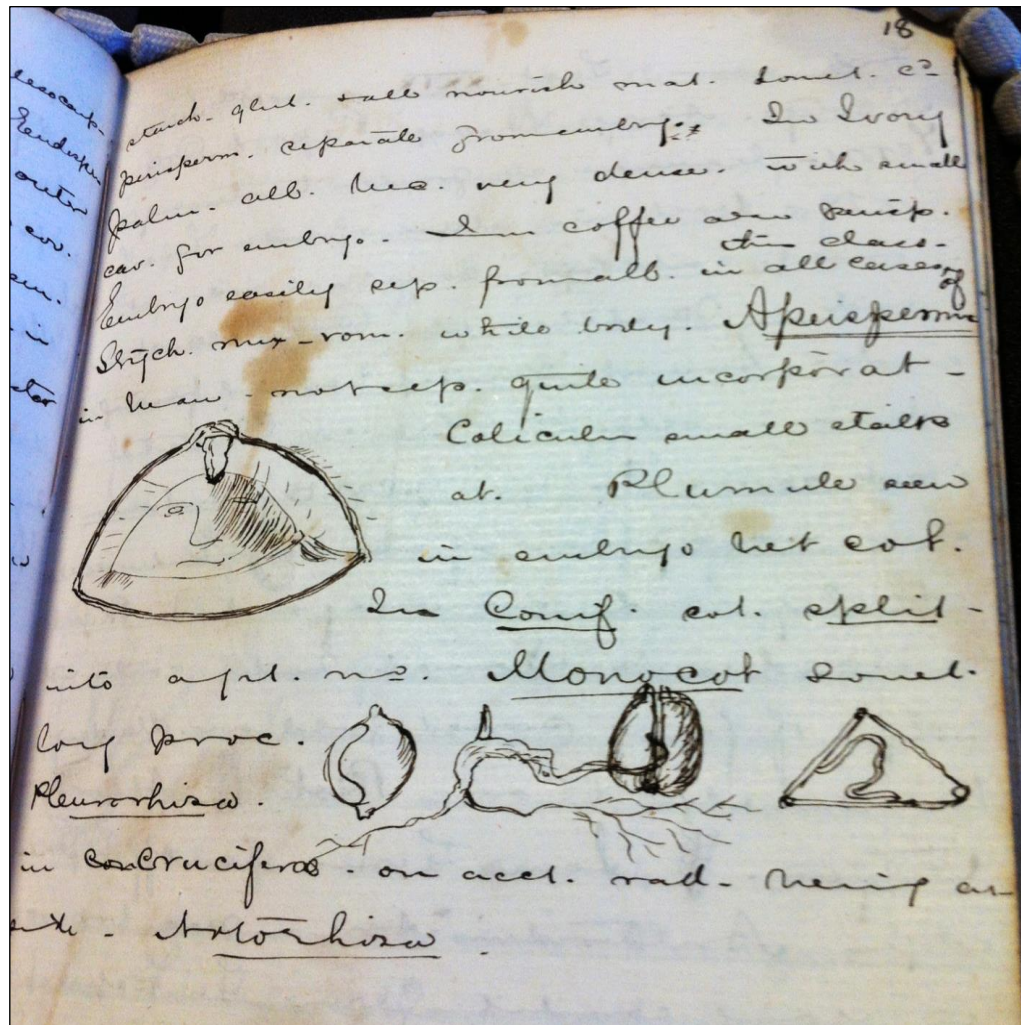 18
starch. glut. sall nourish mat. somet. c^d
perisperm. separate from embryo. In Ivory
palm. alb. bec. very dense. with small
cav. for embryo. In coffee also perisp.
Embryo easily sep. from alb. in all cases of
this class.
Strych. nux-vom. white body. Aperispermic
in Man. not sep. quite incorporat-
Caliculus small stalks
at. Plumule seen
in embryo bet cot.
In Conif. cot. split
into apt. no. Monocot somet.
long proc.
Pleurorhiza.
in Cruciferae. on acct. rad. being at
side. Notorhiza.
mesocarp.
Endosper
outer
cov.
in